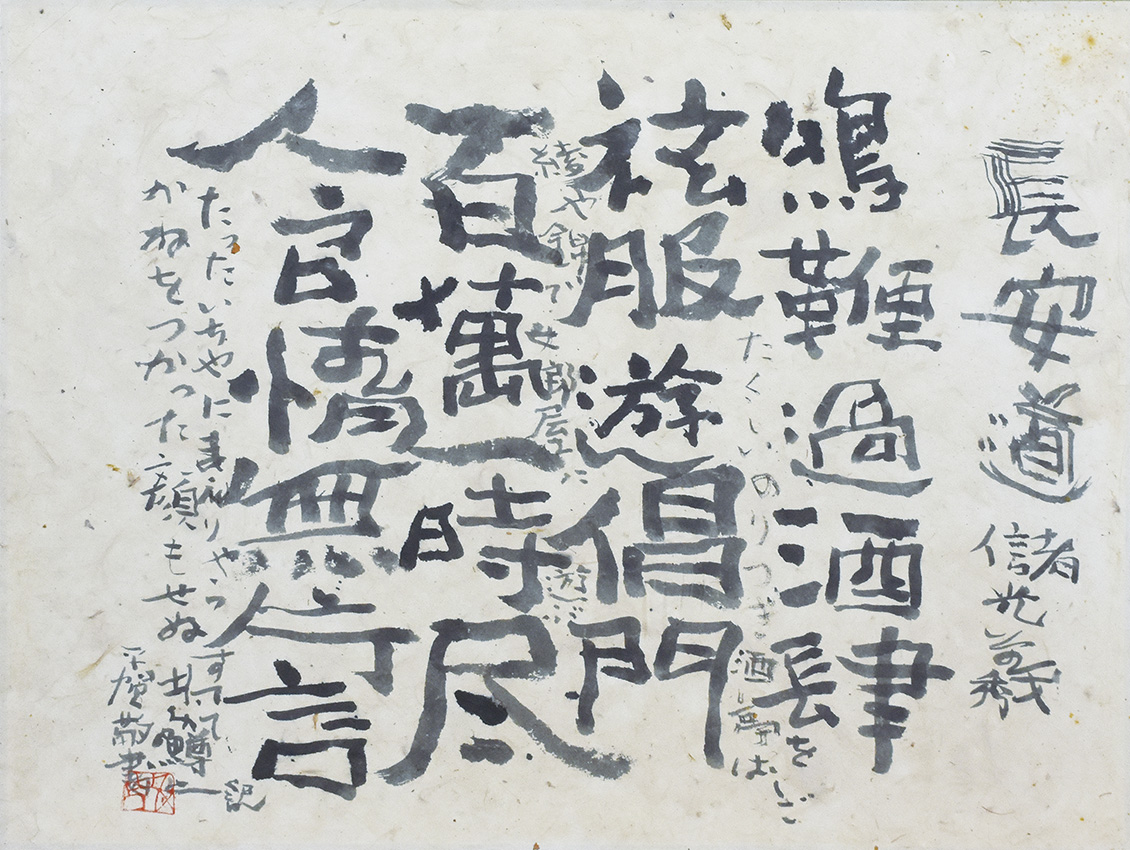 長安道
儲光羲
鳴鞭過酒肆
たくしいのりつぎ酒場はしごを
袨服遊倡門
綾や錦で女郎屋に遊ぶ
百萬一時尽
含情無片言
たったいちやにまんりやうすてて
かねをつかつた顔もせぬ
井伏鱒二訳
平賀敬書